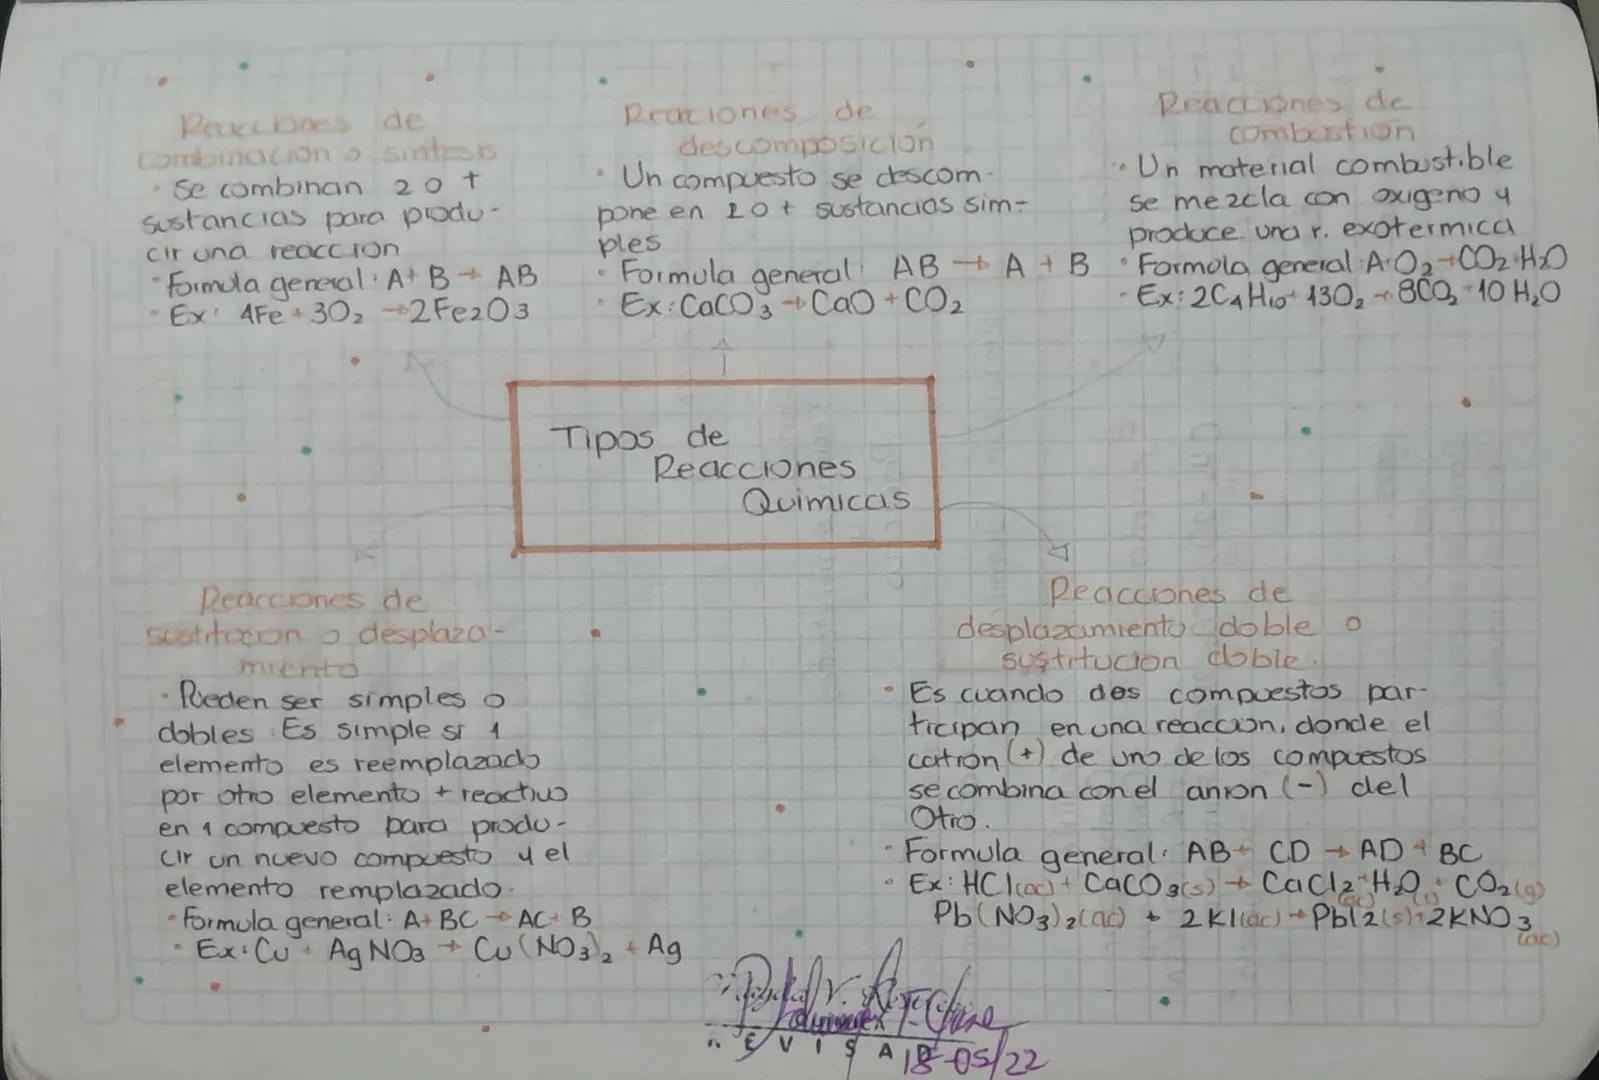 Reacciones de
combinacion o sintesis
· Se combinan 2 o +
sustancias para produ-
cir una reaccion
· Formula general: A + B → AB
· Ex: 4Fe + 3O2 → 2Fe2O3
Reaciones de
descomposición
· Un compuesto se descom-
pone en 2 o + sustancias sim-
ples
· Formula general: AB → A + B
· Ex: CaCO3 → CaO + CO2
Reacciones de
combustion
· Un material combustible
se mezcla con oxigeno y
produce una r. exotermica
· Formola general: A+O2→CO2+H2O
· Ex: 2C4H10+ 13O2 → 8CO2 + 10 H2O
Tipos de
Reacciones
Quimicas
Reacciones de
sustitucion o desplaza-
miento
· Pueden ser simples o
dobles. Es simple si 1
elemento es reemplazado
por otro elemento + reactivo
en 1 compuesto para produ-
cir un nuevo compuesto y el
elemento remplazado.
· Formula general: A + BC → AC + B
· Ex: Cu + AgNO3 → Cu(NO3)2 + Ag
Reacciones de
desplazamiento doble o
sustitucion doble.
· Es cuando dos compuestos par-
ticipan en una reaccion, donde el
cation (+) de uno de los compuestos
se combina con el anion (-) del
Otro.
· Formula general: AB + CD → AD + BC
· Ex: HCl(ac) + CaCO3(s) → CaCl2(ac) + H2O(l) + CO2(g)
Pb(NO3)2(ac) + 2KI(ac) → PbI2(s) + 2KNO3(ac)
REVISADO
18-05/22